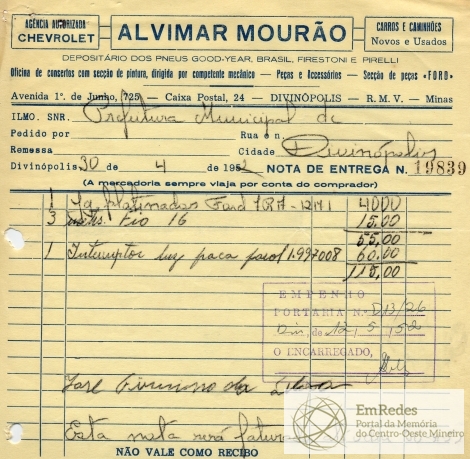 AGÊNCIA AUTORIZADA
CHEVROLET
ALVIMAR MOURÃO
CARROS E CAMINHÕES
Novos e Usados
DEPOSITÁRIO DOS PNEUS GOOD-YEAR, BRASIL, FIRESTONI E PIRELLI
Oficina de consertos com secção de pintura, dirigida por competente mecânico - Peças e Accessórios - Secção de peças «FORD»
Avenida 1º. de Junho, 725 - Caixa Postal, 24 - DIVINÓPOLIS - R. M. V. - Minas
ILMO. SNR. Prefeitura Municipal de
Pedido por Rua e n.
Remessa Cidade Divinópolis
Divinópolis 30 de 4 de 1952 NOTA DE ENTREGA N. 19839
(A mercadoria sempre viaja por conta do comprador)
1 Jg platinados Ford 40.00
3 mts. Fio 16 15.00
55,00
1 Interruptor luz para farol 1.997008 60.00
115,00
EMPENHO
PORTARIA N.º D13/26
Div, de 12, 5, 52
O ENCARREGADO,
da Silva
Esta nota será
NÃO VALE COMO RECIBO
EmRedes
Portal da Memória
do Centro-Oeste Mineiro